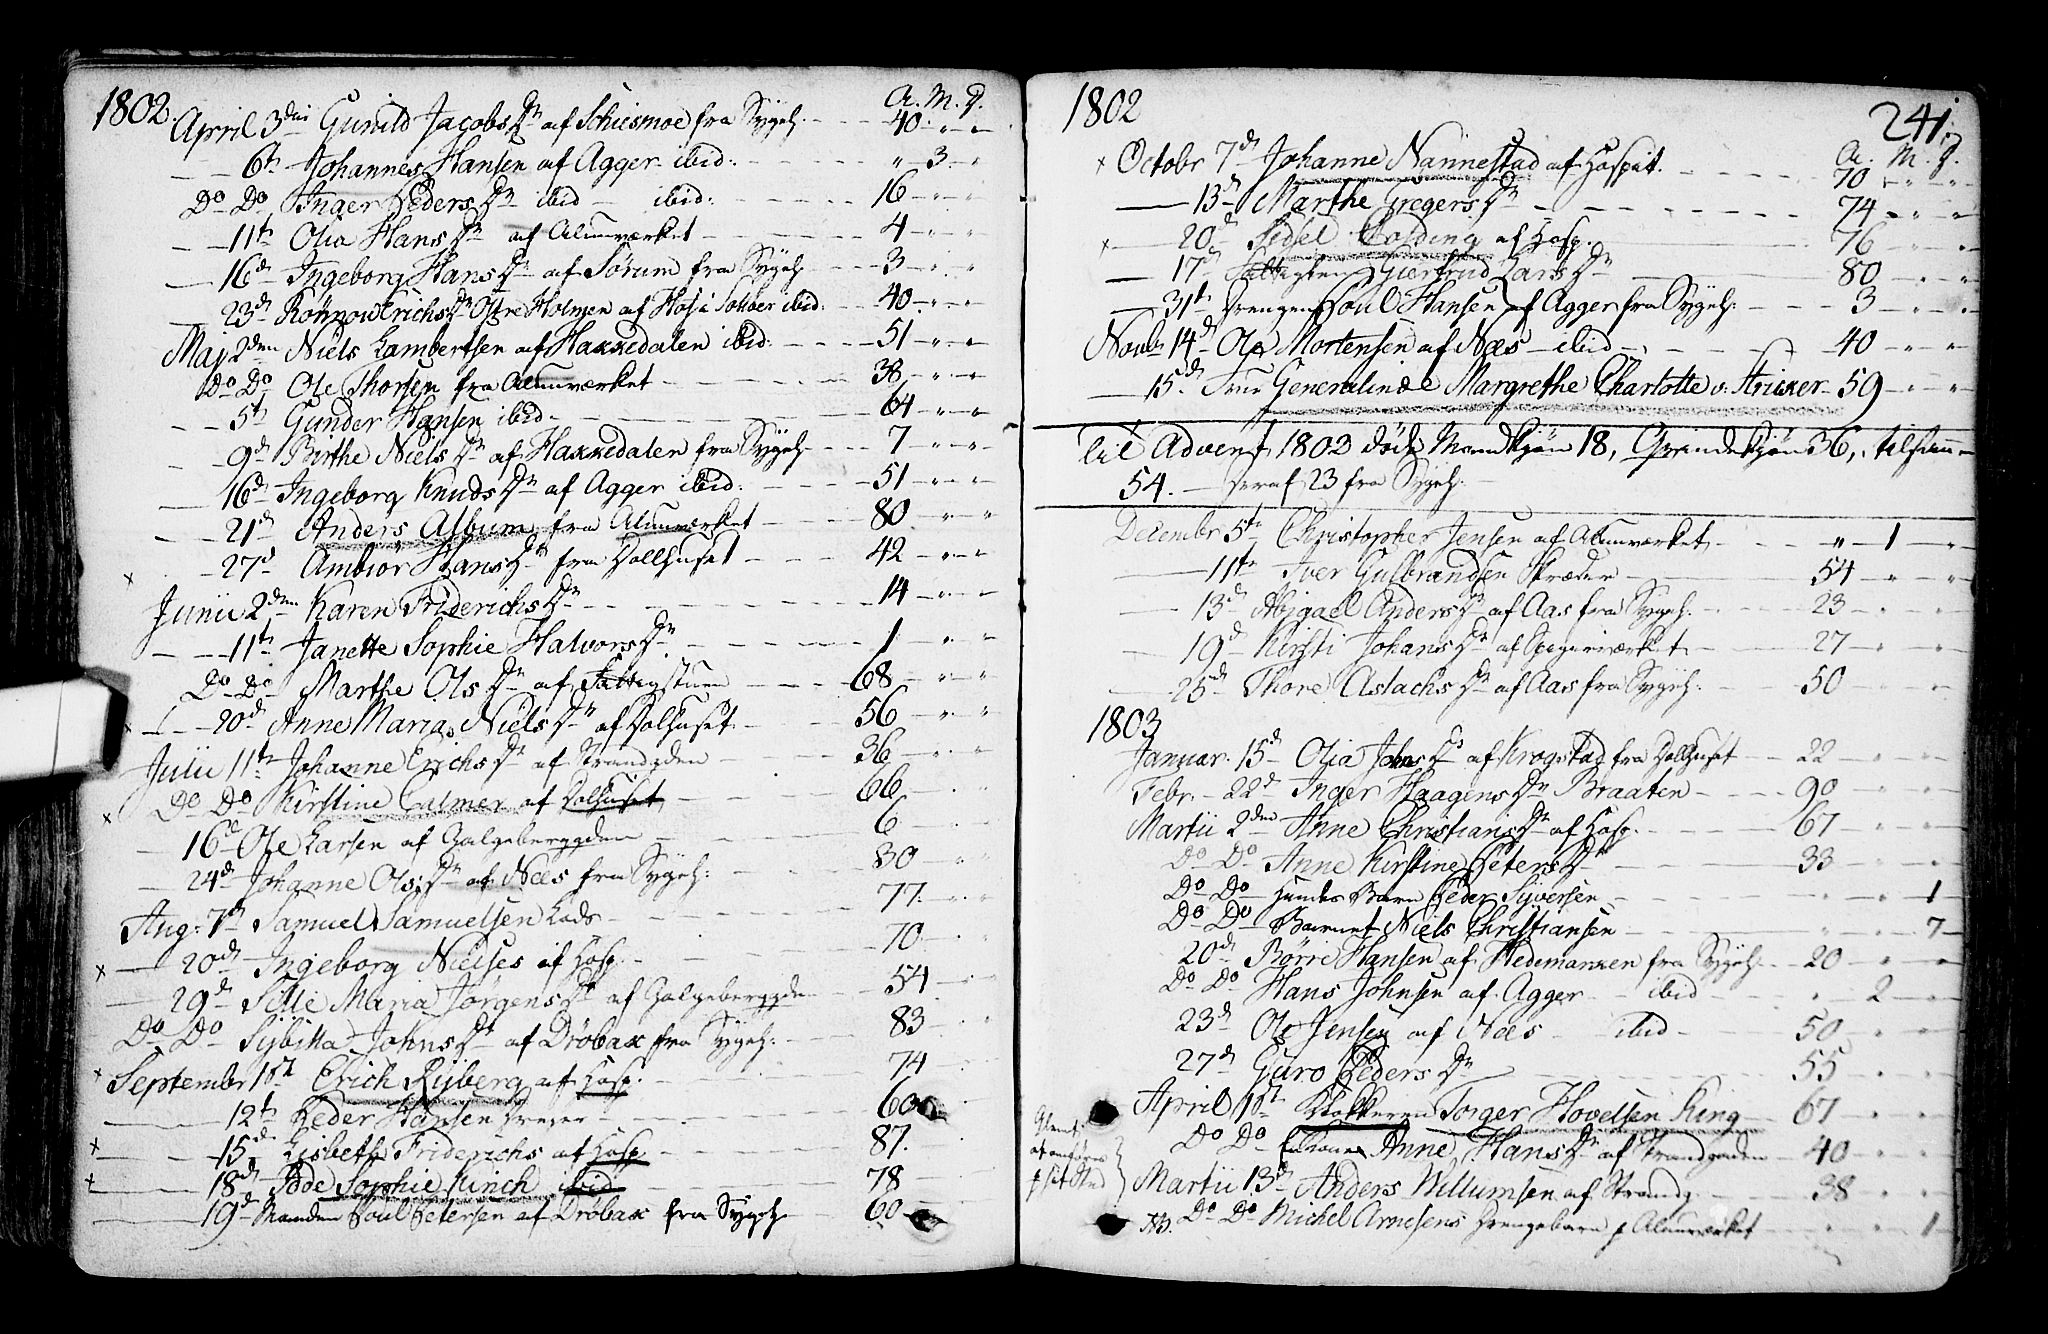 1802.
A. M. D.
April 3die Gunild Jacobs Dr af Schiesmoe fra Sygeh. 40. " "
6te Johannes Hansen af Agger ibid: " 3. "
Do Do Inger Peders Dr ibid ibid: 16 " "
11te Olia Hans Dr af Alunværket 4 " "
16d Ingeborg Hans Dr af Sørum fra Sygeh. 3 " "
23d Erichs Dr af ibid. 40 " "
Maj 2den Niels Lambertsen af Hakkedalen ibid. 51 " "
Do Do Ole Thorsen fra Alunværket 38 " "
5te Gunder Hansen ibid 64 " "
9d Birthe Niels Dr af Hakkedalen fra Sygeh. 7 " "
16d Ingeborg Knuds Dr af Agger ibid. 51 " "
21d Anders Album fra Alunværket 80 " "
x 27d Ambiør Hans Dr fra Dollhuset 42 " "
Junii 2den Karen Friderichs Dr 14 " "
11te Janette Sophie Halvors Dr 1 " "
Do Do Marthe Ols Dr af Fattigstuen 68 " "
x 20d Anne Maria Niels Dr af Dolhuset 56 " "
Julii 11te Johanne Erichs Dr af Strandgden 36 " "
x Do Do Kirstine Calmer af Dolhuset 66 " "
16d Ole Larsen af Galgeberggden 6 " "
24d Johanne Ols Dr af Næs fra Sygeh: 30 " "
Aug: 7d Samuel Samuelsen Lods 77. " "
x 20d Ingeborg Nielses af Hosp. 70 " "
29d Sille Maria Jørgens Dr af Galgeberggden 54 " "
Do Do Sijbilla Johns Dr af Drøbak fra Sygeh: 83 " "
x Septembr 1ste Erich Rijberg af Hosp. 74 " "
12te Peder Hansen 60
x 15d Lisbeth Friderichs af Hosp 87.
x 18d Sophie Kinch ibid 78
19d Manden Poul Petersen af Drøbak fra Sygeh 60
1802
241.
A. M. D.
x Octobr 7d Johanne Nannestad af Hospit. 70 " "
13d Marthe Gregers Dr 74 " "
x 20d Sidsel Colding af Hosp. 76 " "
17d Giertrud Lars Dr 80 " "
31te Drengen Poul Hansen af Agger fra Sygeh: 3 " "
Novb 14d Ole Mortensen af Næs ibid 40 " "
15d Frue Generalinde Margrethe Charlotte v: Stricker 59 " "
til Advent 1802 døde Mandkjøn 18, Qvindekjøn 36, tilsam̄en
54. deraf 23 fra Sygeh.
Decembr 5te Christopher Jensen af Alunværket " 1 "
11te Iver Gulbrandsen Skræder 54 " "
13d Abigael Anders Dr af Aas fra Sygeh. 23 " "
19d Kirsti Johans Dr af Spigerværket 27 " "
25d Thore Aslachs Dr af Aas fra Sygeh: 50 " "
1803
Januar. 15d Olia Johns Dr af Krogstad fra Dollhuset 22 " "
Febr. 22d Inger Haagens Dr Braaten 90 " "
Martii 2den Anne Christians Dr af Hosp. 67 " "
Do Do Anne Kirstine Peters Dr 33 " "
Do Do Hendes Barn Peder Sijversen " " 1
Do Do Barnet Niels Christiansen " " 7
20d Børre Hansen af Hedemarken fra Sygeh. 20 " "
Do Do Hans Johnsen af Agger ibid " 2 "
23d Ole Jensen af Næs ibid 50 " "
27d Guro Peders Dr 55 " "
April 1ste Klokkeren Torger Hovelsen Ring 67 " "
Do Do Enkonen Anne Hans Dr af Strandgaden 40 " "
Glemt
at anføres
p sit Sted
Martii 13d Anders Willumsen af Strandg. 38 " "
NB. Do Do Michel Arnesens Drengebarn p Alunværket " " 1